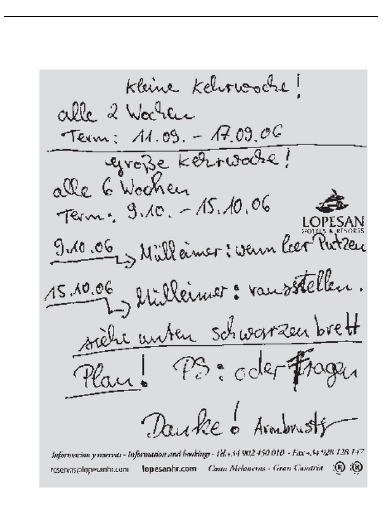 kleine Kehrwoche!
alle 2 Wochen
Term: 11.09. – 17.09.06
große Kehrwoche!
alle 6 Wochen
Term: 9.10. – 15.10.06
LOPESAN
HOTELS & RESORTS
9.10.06 → Mülleimer: wenn leer Putzen
15.10.06 → Mülleimer: rausstellen.
siehe unten schwarzen brett
Plan! PS: oder Fragen
Danke! Armbrust
Información y reservas - Information and bookings - Tel. +34 902 450 010 - Fax +34 928 128 147
lopesanhr.com Costa Meloneras - Gran Canaria